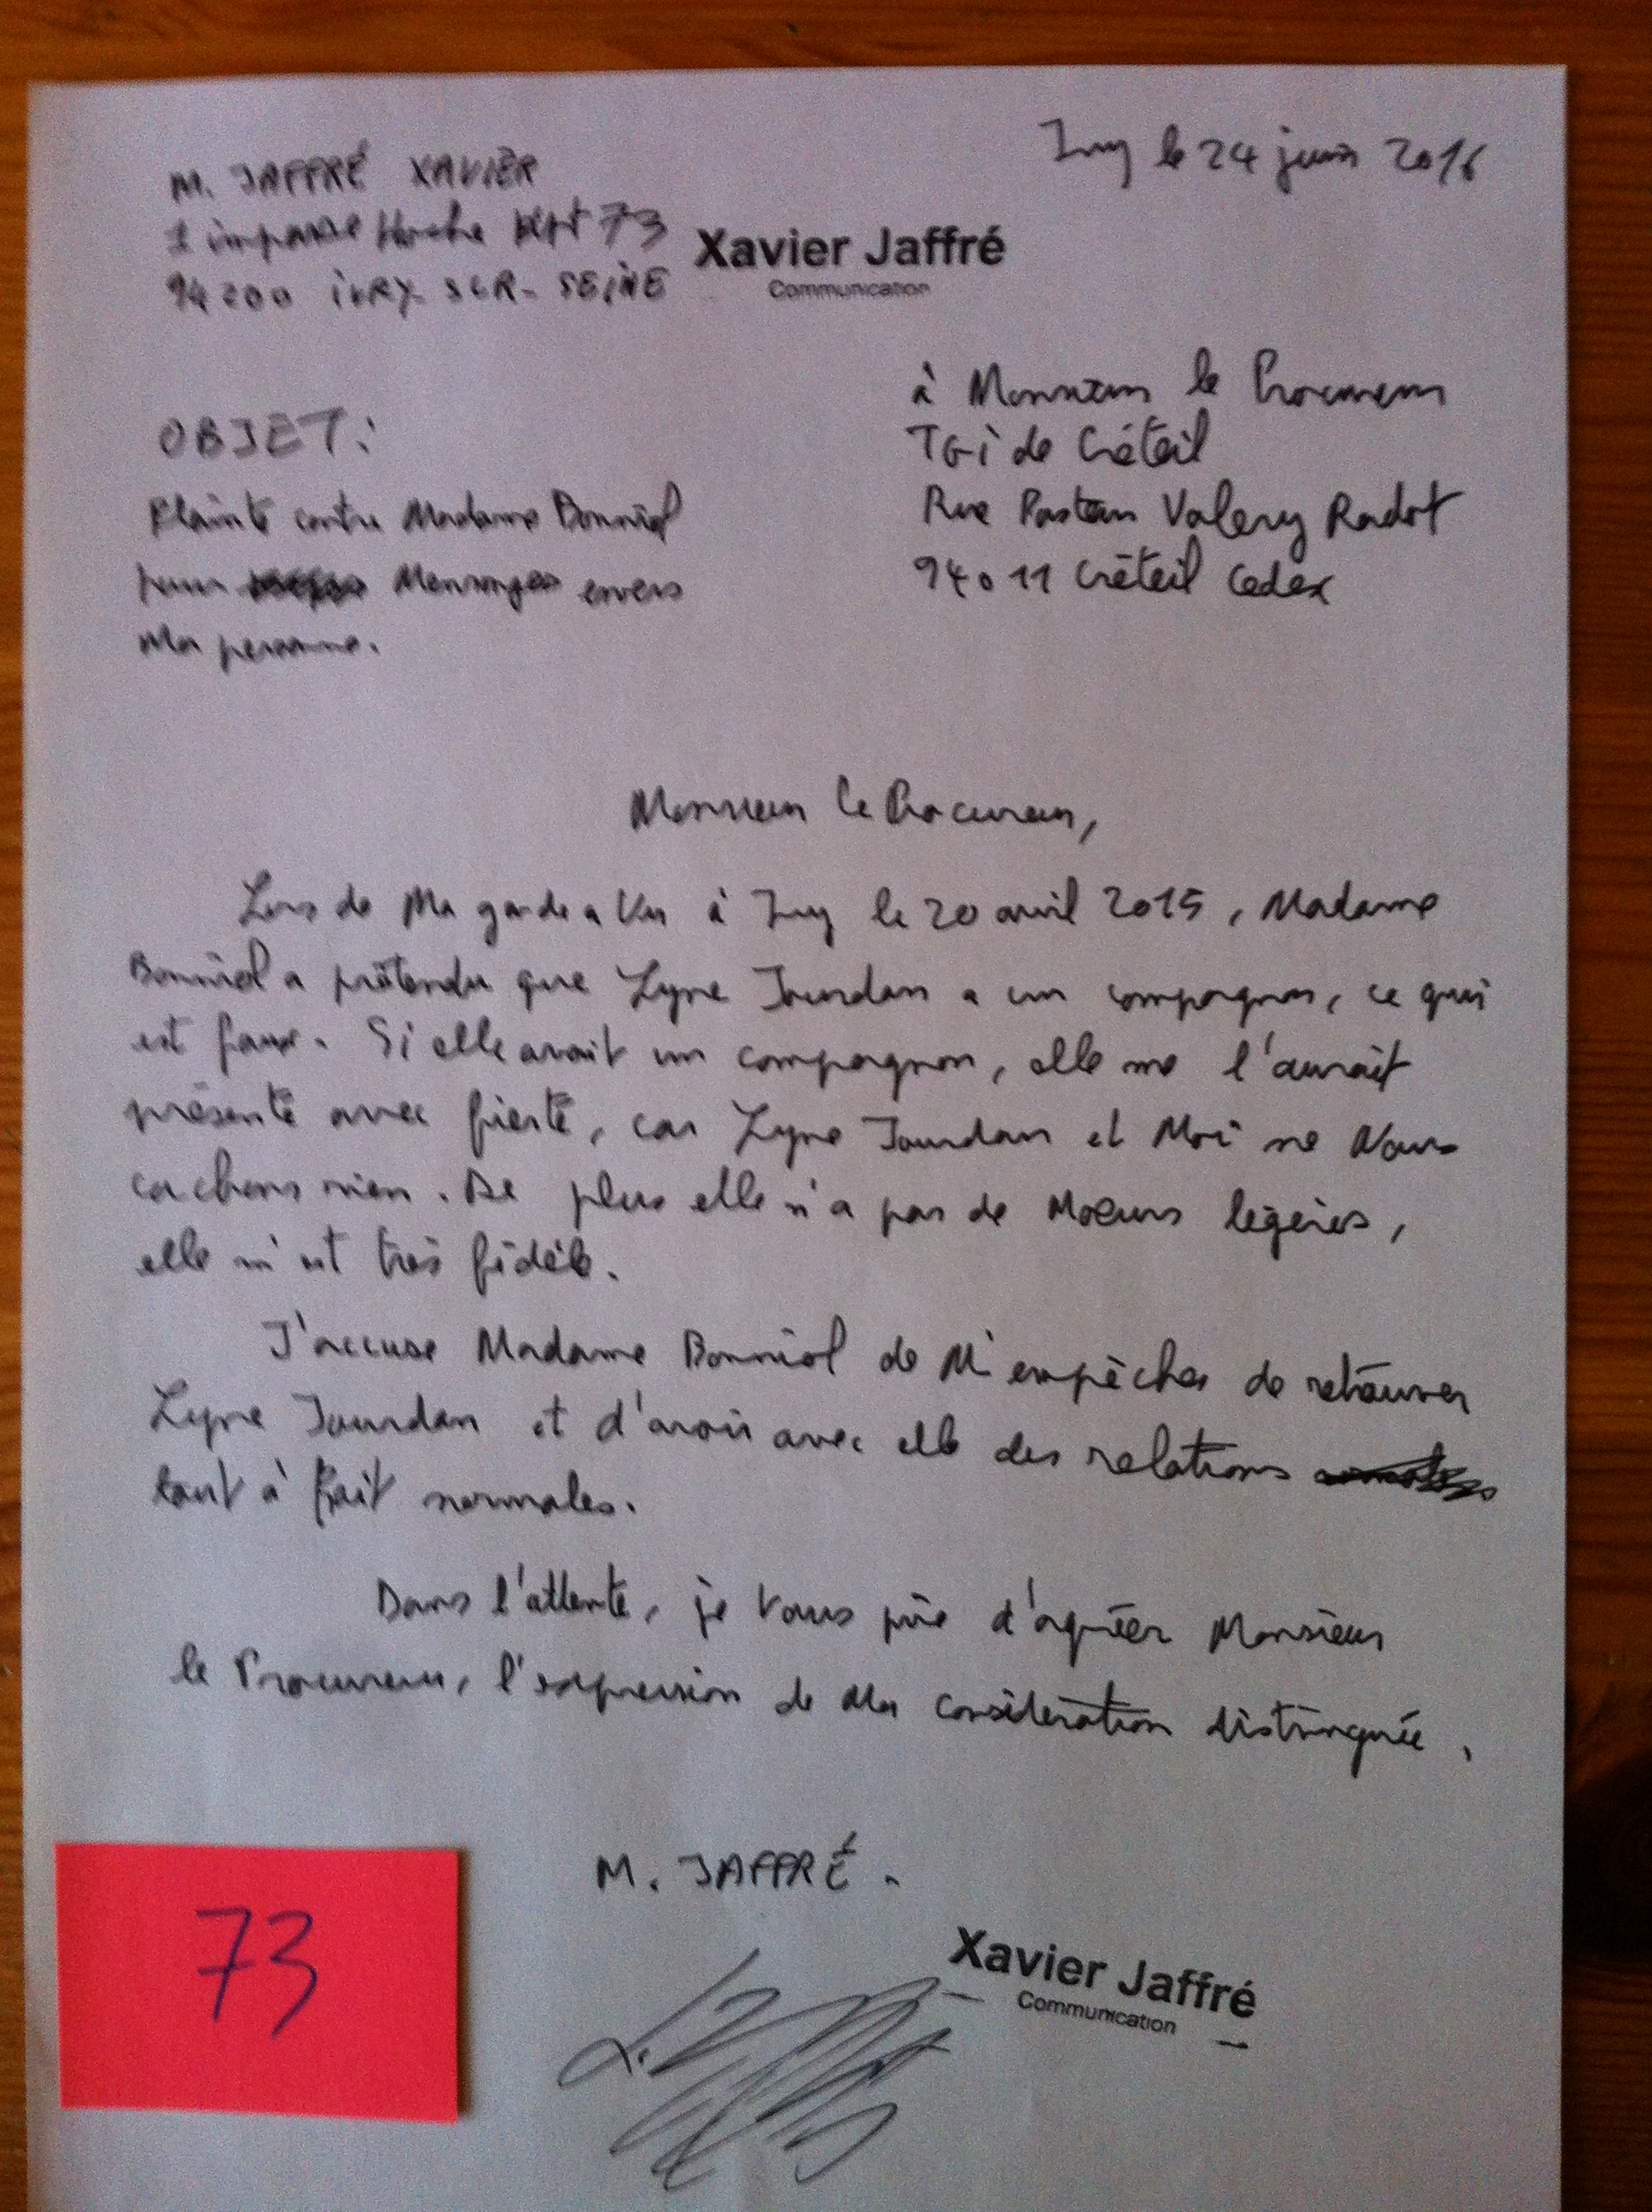 Ivry le 24 juin 2016
M. JAFFRÉ XAVIER
1 impasse Hoche Appt 73
94200 IVRY-SUR-SEINE
Xavier Jaffré
Communication
à Monsieur le Procureur
TGI de Créteil
Rue Pasteur Valery Radot
94011 Créteil Cedex
OBJET:
Plainte contre Madame Bonniol
pour Mensonges envers
Ma personne.
Monsieur le Procureur,
Lors de Ma garde a Vu à Ivry le 20 avril 2015, Madame
Bonniol a prétendu que Lyne Jourdan a un compagnon, ce qui
est faux. Si elle avait un compagnon, elle me l'aurait
présenté avec fierté, car Lyne Jourdan et Moi ne Nous
cachons rien. De plus elle n'a pas de Moeurs légères,
elle m'est très fidèle.
J'accuse Madame Bonniol de M'empêcher de retrouver
Lyne Jourdan et d'avoir avec elle des relations
tout à fait normales.
Dans l'attente, je Vous prie d'agréer Monsieur
le Procureur, l'expression de Ma considération distinguée.
M. JAFFRÉ.
Xavier Jaffré
Communication
73